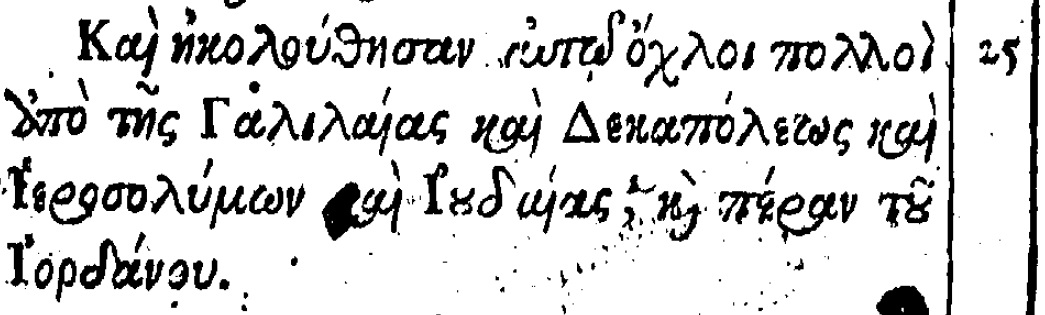 Καὶ ἠκολούθησαν αὐτῷ ὄχλοι πολλοὶ 25
ἀπὸ τῆς Γαλιλαίας καὶ Δεκαπόλεως καὶ
Ἱεροσολύμων καὶ Ἰουδαίας, καὶ πέραν τοῦ
Ἰορδάνου.